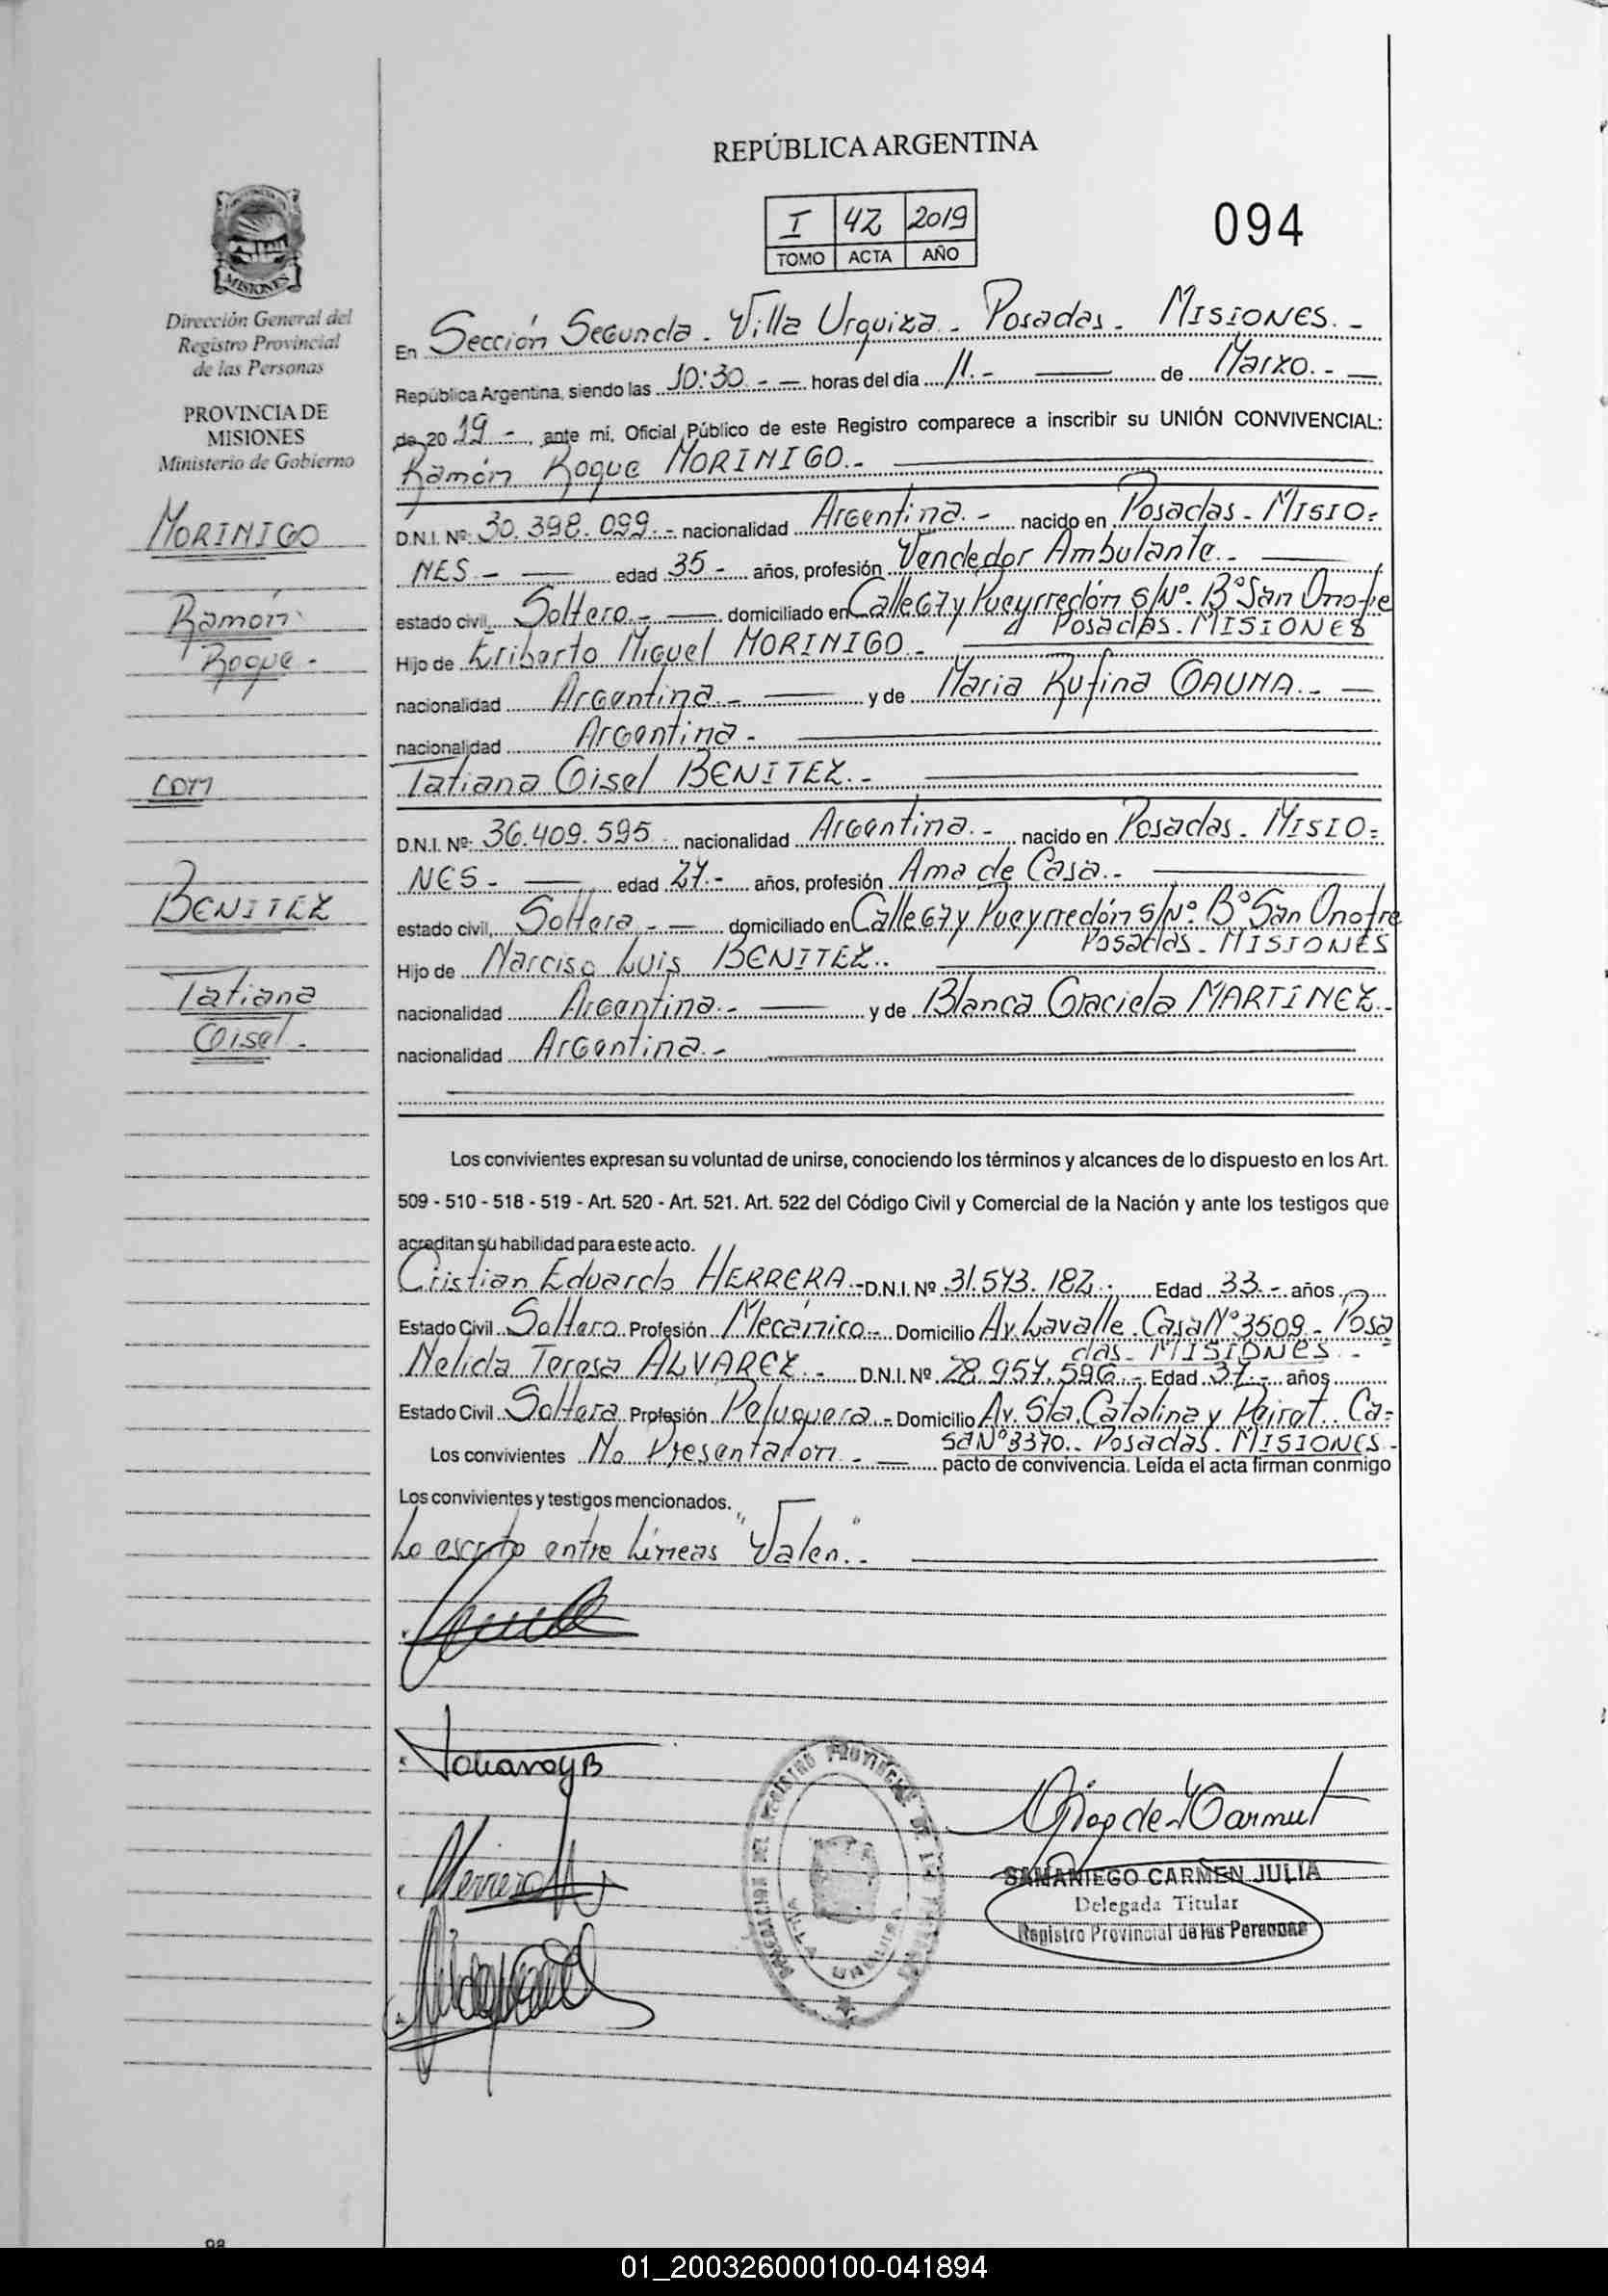 REPÚBLICA ARGENTINA
I 42 2019
TOMO ACTA AÑO
094
MISIONES
Dirección General del
Registro Provincial
de las Personas
PROVINCIA DE
MISIONES
Ministerio de Gobierno
MORINIGO
Ramón
Roque -
con
BENITEZ
Tatiana
Gisel -
En Sección Segunda - Villa Urquiza - Posadas - MISIONES. -
República Argentina, siendo las 10:30 - — horas del día 11. - — de Marzo. - —
de 2019 - , ante mí, Oficial Público de este Registro comparece a inscribir su UNIÓN CONVIVENCIAL:
Ramón Roque MORINIGO. -
D.N.I. Nº: 30.398.099. - nacionalidad Argentina. - nacido en Posadas - MISIO=
NES - — edad 35 - años, profesión Vendedor Ambulante. -
estado civil Soltero. - — domiciliado en Calle 67 y Pueyrredón S/Nº. Bº San Onofre
Posadas. MISIONES
Hijo de Eriberto Miguel MORINIGO. -
nacionalidad Argentina. - — y de Maria Rufina GAUNA. - —
nacionalidad Argentina -
Tatiana Gisel BENITEZ. -
D.N.I. Nº: 36.409.595. - nacionalidad Argentina. - nacido en Posadas - MISIO=
NES - — edad 27. - años, profesión Ama de Casa. -
estado civil Soltera. - — domiciliado en Calle 67 y Pueyrredón S/Nº. Bº San Onofre
Posadas - MISIONES
Hijo de Narciso Luis BENITEZ. -
nacionalidad Argentina. - — y de Blanca Graciela MARTINEZ. -
nacionalidad Argentina. -
Los convivientes expresan su voluntad de unirse, conociendo los términos y alcances de lo dispuesto en los Art.
509 - 510 - 518 - 519 - Art. 520 - Art. 521. Art. 522 del Código Civil y Comercial de la Nación y ante los testigos que
acreditan su habilidad para este acto.
Cristian Eduardo HERRERA. - D.N.I. Nº 31.543.182. - Edad 33. - años
Estado Civil Soltero Profesión Mecánico - Domicilio Av. Lavalle. Casa Nº 3509 - Posa
das - MISIONES. -
Nelida Teresa ALVAREZ. - D.N.I. Nº 28.957.596. - Edad 37. - años
Estado Civil Soltera Profesión Peluquera - Domicilio Av. Sta. Catalina y Peirot. Ca=
sa Nº 3370. Posadas. MISIONES -
Los convivientes No Presentaron. - — pacto de convivencia. Leída el acta firman conmigo
Los convivientes y testigos mencionados.
Lo escrito entre Líneas "Valen". -
DELEGACION DEL REGISTRO PROVINCIAL DE LAS PERSONAS
VILLA URQUIZA
SAMANIEGO CARMEN JULIA
Delegada Titular
Registro Provincial de las Personas
98
01_200326000100-041894